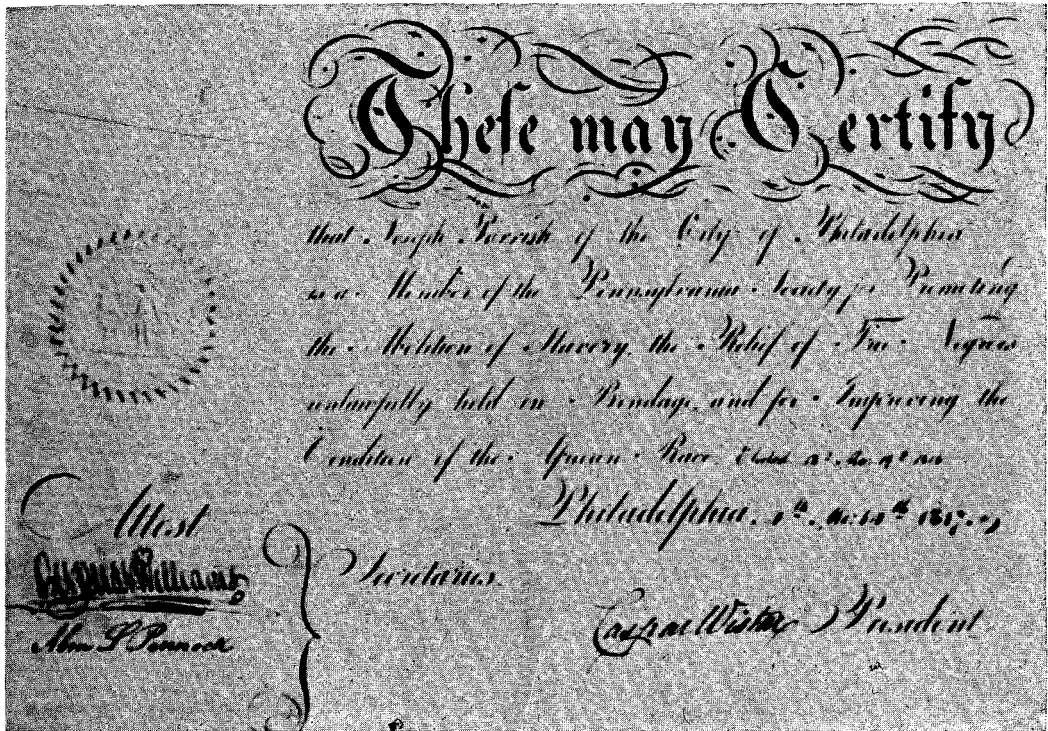 These may Certify
that Joseph Parrish of the City of Philadelphia
is a Member of the Pennsylvania Society for Promoting
the Abolition of Slavery, the Relief of Free Negroes
unlawfully held in Bondage, and for Improving the
Condition of the African Race. Elected
Philadelphia,
Attest
Williams
Abm L Pennock
Secretaries
Caspar Wistar President